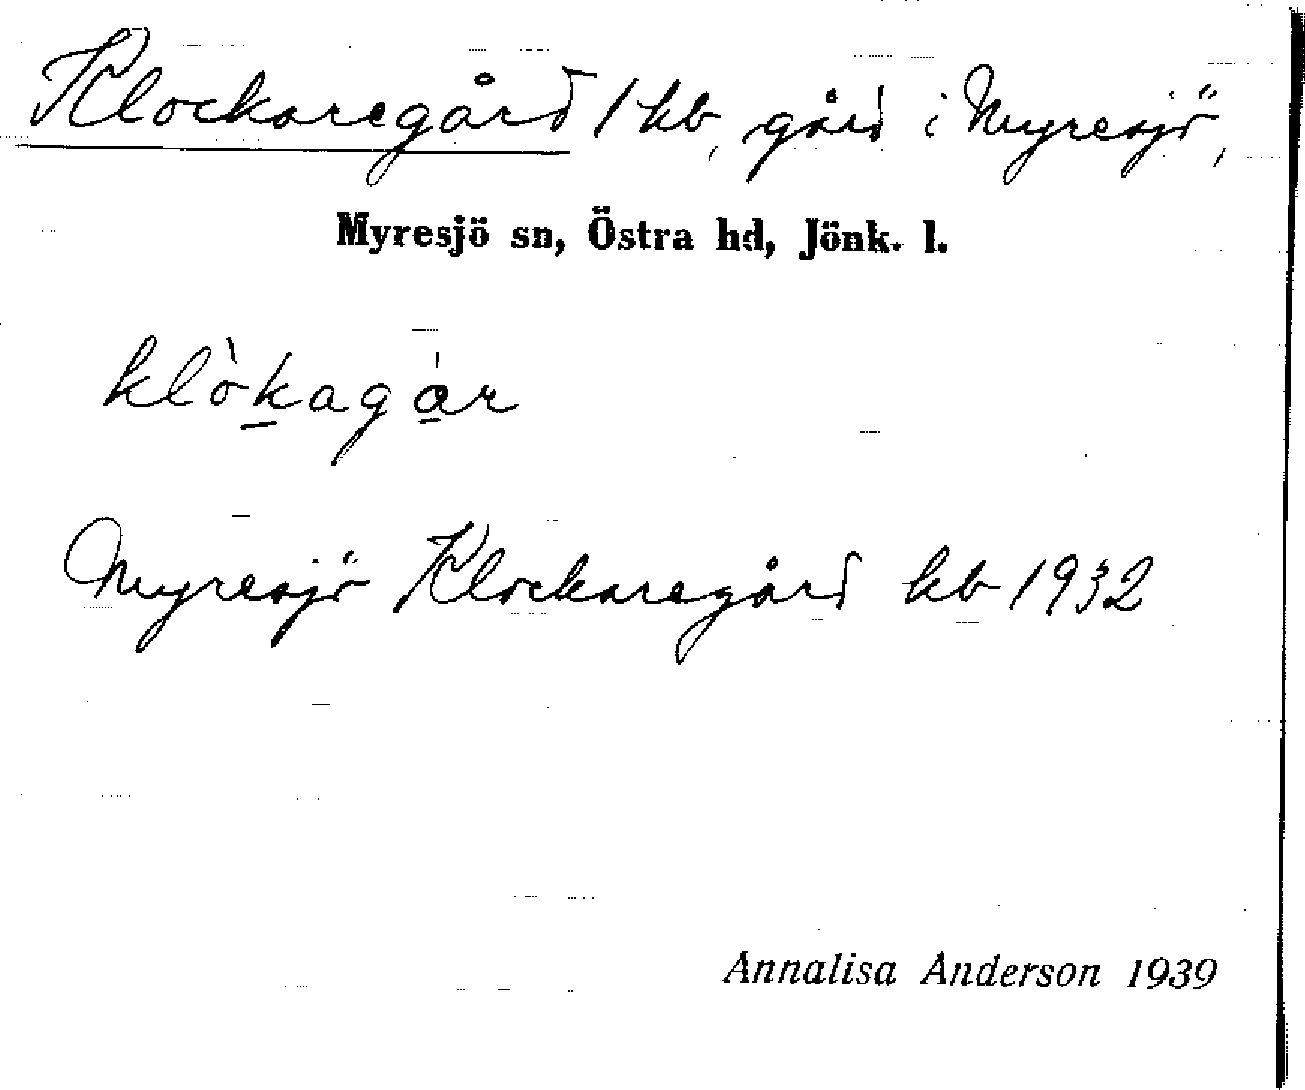 Klockaregård 1 kb, gård i Myresjö,
Myresjö sn, Östra hd, Jönk. l.
klòkagár
Myresjö Klockaregård kb 1932
Annalisa Anderson 1939